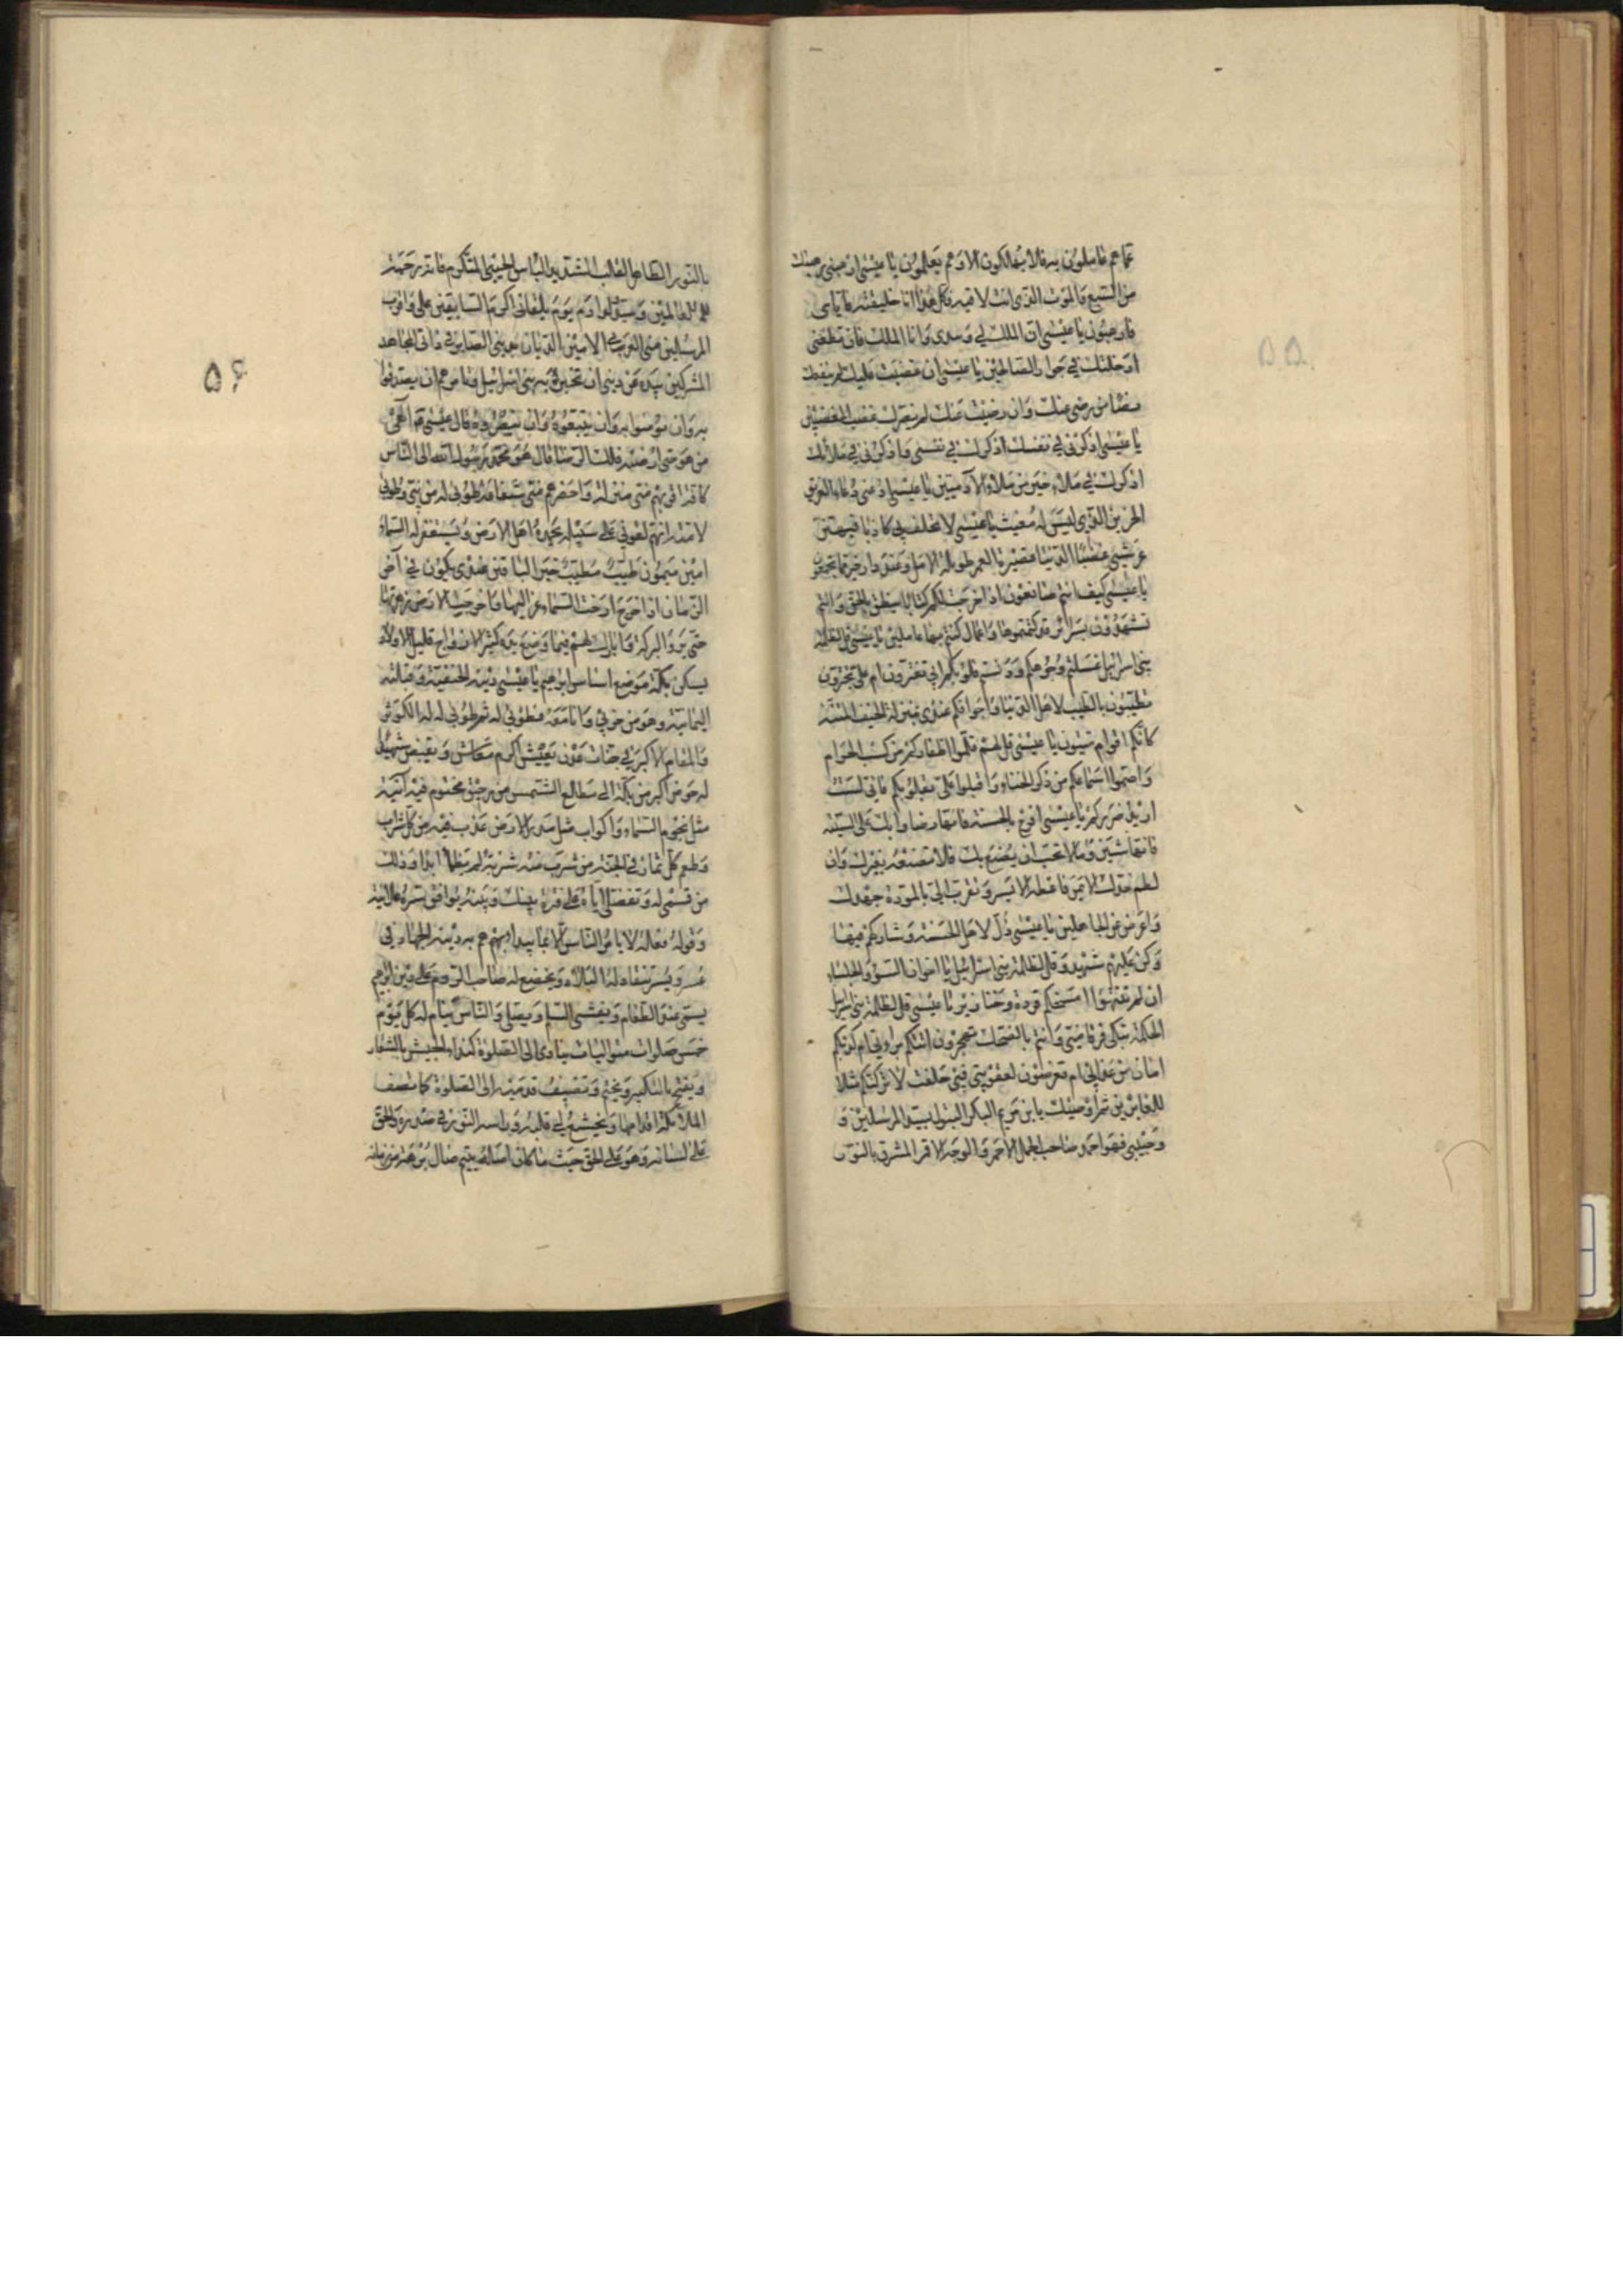 عما هم عاملون به فلا يهلكون الا وهم يعلمون يا عيسى ارهبنى رهبتك
من السبع والموت الذى انت لاقيه فكل هذا انا خلقته فاياى
فارهبون يا عيسى ان الملك لي وبيدى وانا الملك فان تطعنى
ادخلتك في جوار الصالحين يا عيسى ان غضبت عليك لم ينفعك
رضا من رضى عنك وان رضيت عنك لم يضرك غضب المغضبين
يا عيسى اذكرنى في نفسك اذكرك في نفسى واذكرنى في ملائك
اذكرك في ملاء خير من ملاء الآدميين يا عيسى ادعنى دعاء الغريق
الحزين الذى ليس له مغيث يا عيسى لا تحلف بي كاذبا فيهتز
عرشي غضبا الدنيا قصيرة العمر طويلة الامل وعندى دار خير مما تجمعون
يا عيسى كيف انتم صانعون اذا اخرجت لكم كتابا ينطق بالحق وانتم
تشهدون بسرائر قد كتمتموها واعمال كنتم بها عاملين يا عيسى قل لظلمة
بنى اسرائيل غسلتم وجوهكم ودنستم قلوبكم ابي تغترون ام على تجترؤن
تطيبون بالطيب لاهل الدنيا واجوافكم عندى بمنزلة الجيف المنتنة
كانكم اقوام ميتون يا عيسى قل لهم قلموا اظفاركم من كسب الحرام
واصموا اسماعكم من ذكر الخناء واقبلوا على بقلوبكم فاني لست
اريد ضرركم يا عيسى افرح بالحسنة فانها رضا وابك على السيئة
فانها شين وما لا تحب ان يصنع بك فلا تصنعه بغيرك وان
لطم خدك الايمن فاعطه الايسر وتقرب الي بالمودة جهدك
واعرض عن الجاهلين يا عيسى ذل لاهل الحسنة وشاركهم فيها
وكن عليهم شهيد وقل لظلمة بنى اسرائيل يا اخوان السوء والجلساء
ان لم تنتهوا امسخكم قردة وخنازير يا عيسى قل لظلمة بنى اسرائيل
الحكمة تبكى فرقا منى وانتم بالضحك تهجرون اتتكم براءتي ام لديكم
امان من عذابي ام تعرضون لعقوبتى فبى حلفت لاتركنكم مثلا
للغابرين ثم اوصيك يا ابن مريم البكر البتول بسيد المرسلين و
وحبيبى فهو احمد صاحب الجمل الاحمر والوجه الاقمر المشرق بالنور
۵۵
بالنور الطاهر القلب الشديد الباس الحيي المتكرم فانه رحمة
للعالمين وسيد ولد ادم يوم يلقانى اكرم السابقين على واقرب
المرسلين منى العربي الامين الديان بدينى الصابر في ذاتى المجاهد
المشركين بيده عن دينى ان تخبر به بنى اسرائيل وتامرهم ان يصدقوا
به وان يؤمنوا به وان يتبعوه وان ينصروه قال عيسى الهى
من هو حتى ارضيه فلك الرضا قال هو محمد رسول الله الى الناس
كافة اقربهم منى منزلة واحضرهم منى شفاعة طوبى له من نبي وطوبى
لامته ان هم لقونى على سبيله يحمده اهل الارض ويستغفر له السماء
امين ميمون طيب مطيب خير الباقين عندى يكون في آخر
الزمان اذا خرج ارخت السماء عزاليها واخرجت الارض زهرتها
حتى يروا البركة وابارك لهم فيما وضع يده كثير الازواج قليل الاولاد
يسكن بكة موضع اساس ابرهيم يا عيسى دينه الحنفية وقبلته
اليمانية وهو من حزبي وانا معه فطوبى له ثم طوبى له له الكوثر
والمقام الاكبر في جنات عدن يعيش اكرم معاش ويقبض شهيدا
له حوض اكبر من بكة الى مطلع الشمس من رحيق مختوم فيه آنية
مثل نجوم السماء واكواب مثل مدر الارض عذب فيه من كل شراب
وطعم كل ثمار في الجنة من شرب منه شربة لم يظما ابدا وذلك
من قسمى له وتفضلى اياه على فترة بينك وبينه يوافق سره علانيته
وقوله فعاله لا يامر الناس الا بما يبداهم به دينه الجهاد في
عسر ويسر تنقاد له البلاد ويخضع له صاحب الروم على دين ابرهيم
يسمى عند الطعام ويفشى السلام ويصلى والناس نيام له كل يوم
خمس صلوات متواليات ينادى الى الصلوة كنداء الجيش بالشعار
ويفتح بالتكبير ويختم وتصف قدميه الى الصلوة كما تصف
الملائكة اقدامها ويخشع لي قلبه وراسه النور في صدره والحق
على لسانه وهو على الحق حيث ما كان اصله يتيم ضال برهة من زمانه
۵۶